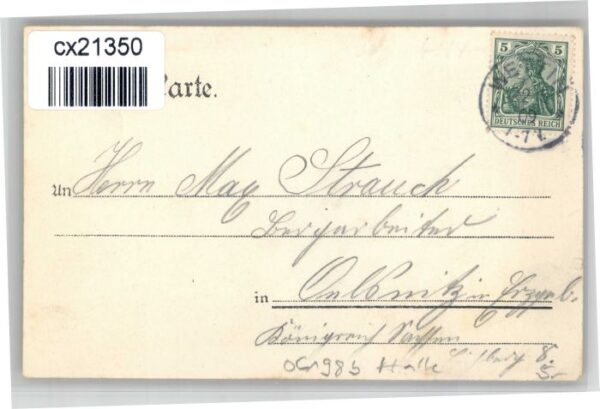 cx21350
Karte.
5 5
DEUTSCHES REICH
An Herrn Max Strauch
Bergarbeiter
in Oelsnitz i Erzgeb.
Königreich Sachsen
8.
Halle